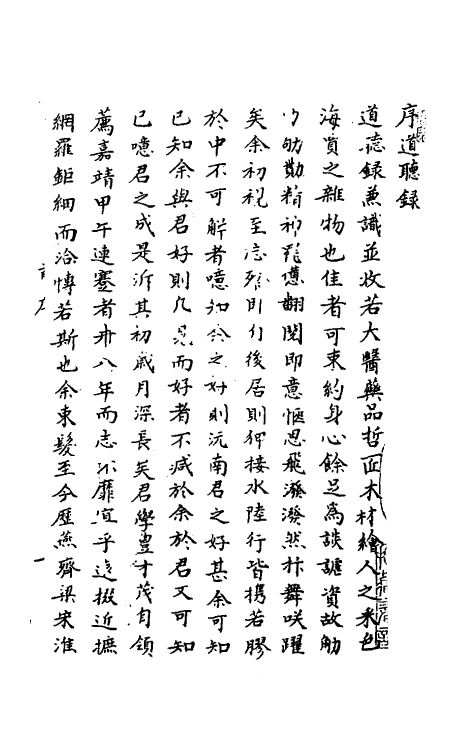 序道聽録
道聽録兼識並收若大醫藥品哲匠木材繪人之采色
海賈之雜物也佳者可束約身心餘足為談謔資故觔
勩精神翻閱即意愜思飛潑潑然抃舞咲躍
矣余初視至忘行後居則狎接水陸行皆携若膠
於中不可解者噫余之好則沅南君之好甚余可知
已知余與君好則凡見而好者不減於余於君又可知
已噫君之成是泝其初歲月深長矣君學豊才茂自領
薦嘉靖甲午連蹇者卅八年而志不靡宜乎遠掇近摭
網羅鉅細而洽愽若斯也余束髮至今歷燕齊梁宋淮